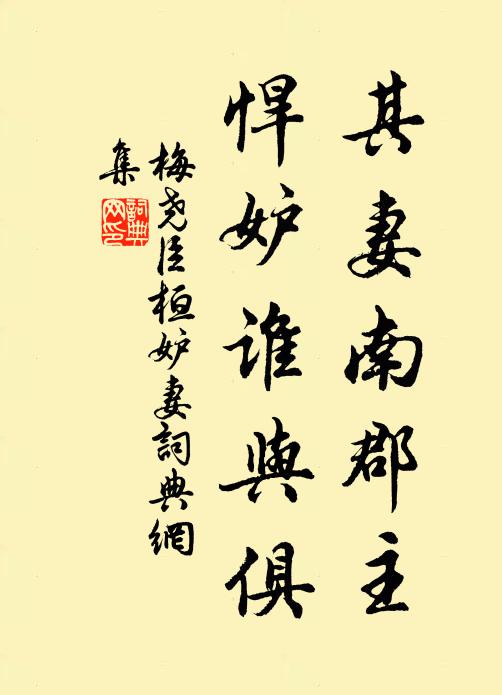 其妻南郡主
悍妒谁與俱
梅尧臣桓妒妻詞典網
集
詞典
网印